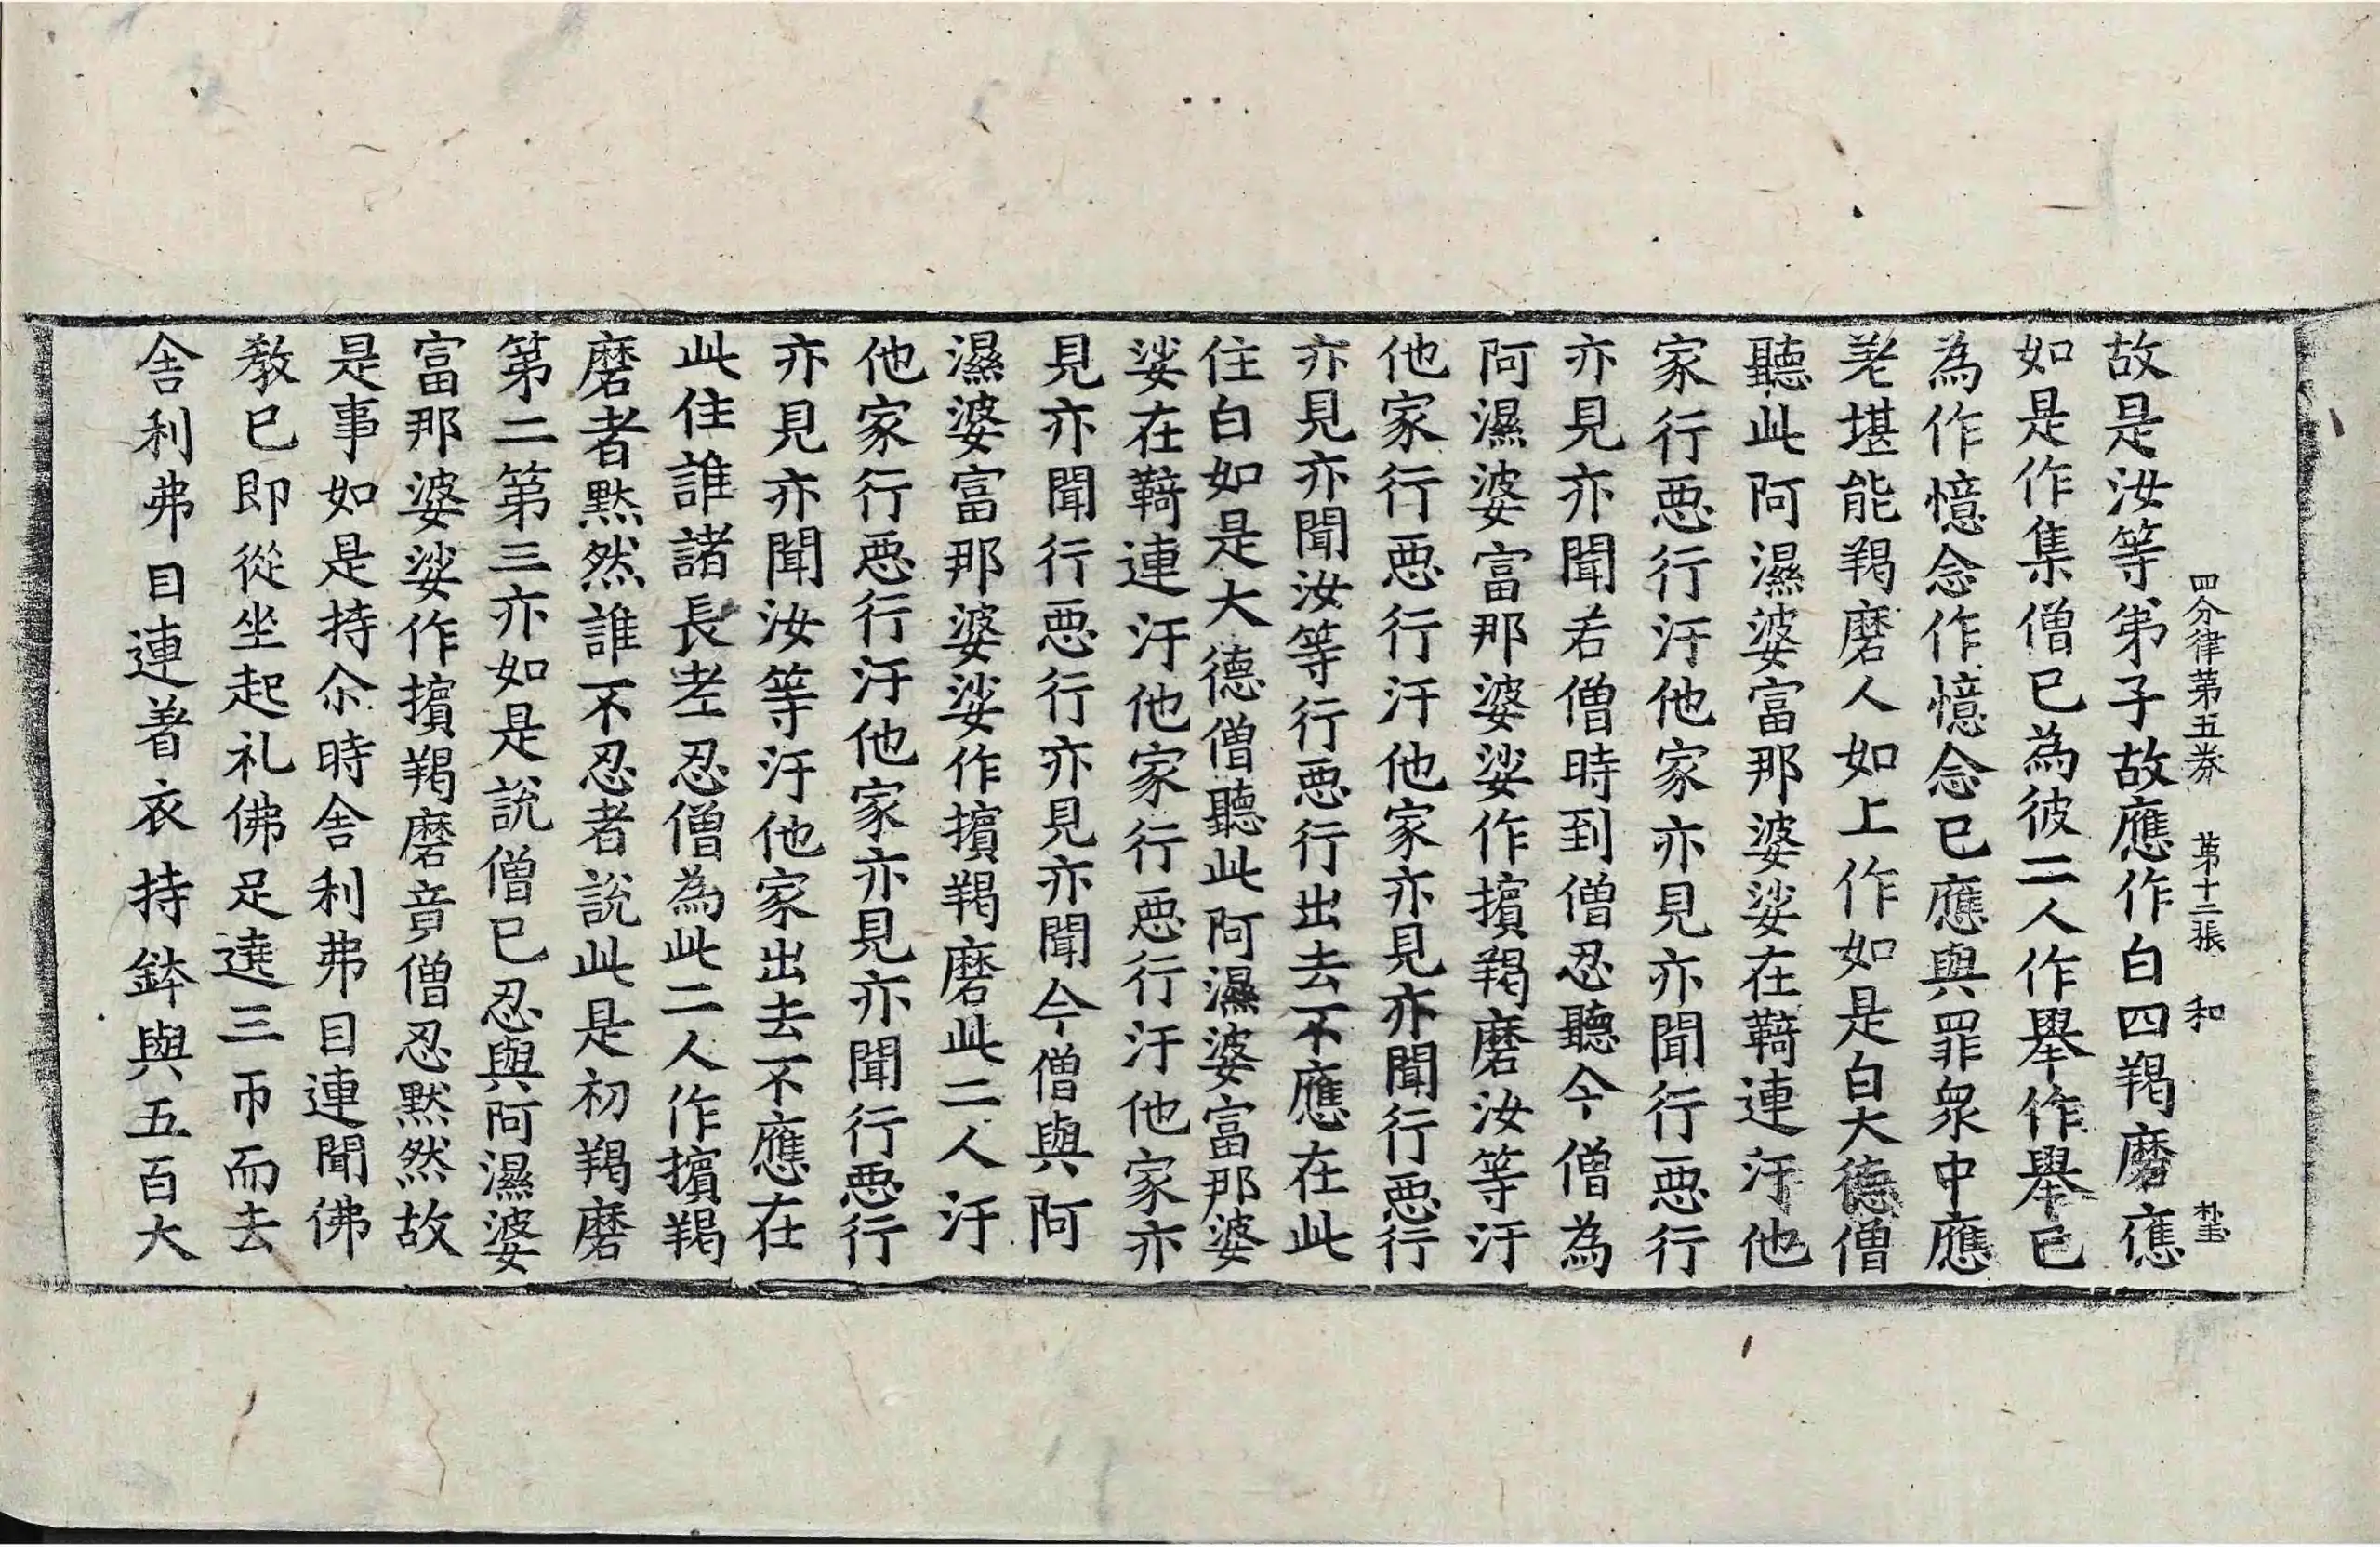 四分律第五券 第十二張 和 朴玉
故是汝等弟子故應作白四羯磨應
如是作集僧已為彼二人作舉作舉已
為作憶念作憶念已應與罪眾中應
差堪能羯磨人如上作如是白大德僧
聽此阿濕婆富那婆娑在鞞連汙他
家行惡行汙他家亦見亦聞行惡行
亦見亦聞若僧時到僧忍聽今僧為
阿濕婆富那婆娑作擯羯磨汝等汙
他家行惡行汙他家亦見亦聞行惡行
亦見亦聞汝等行惡行出去不應在此
住白如是大德僧聽此阿濕婆富那婆
娑在鞞連汙他家行惡行汙他家亦
見亦聞行惡行亦見亦聞今僧與阿
濕婆富那婆娑作擯羯磨此二人汙
他家行惡行汙他家亦見亦聞行惡行
亦見亦聞汝等汙他家出去不應在
此住誰諸長老忍僧為此二人作擯羯
磨者默然誰不忍者說此是初羯磨
第二第三亦如是說僧已忍與阿濕婆
富那婆娑作擯羯磨竟僧忍默然故
是事如是持尒時舍利弗目連聞佛
教已即從坐起礼佛足遶三帀而去
舍利弗目連著衣持鉢與五百大